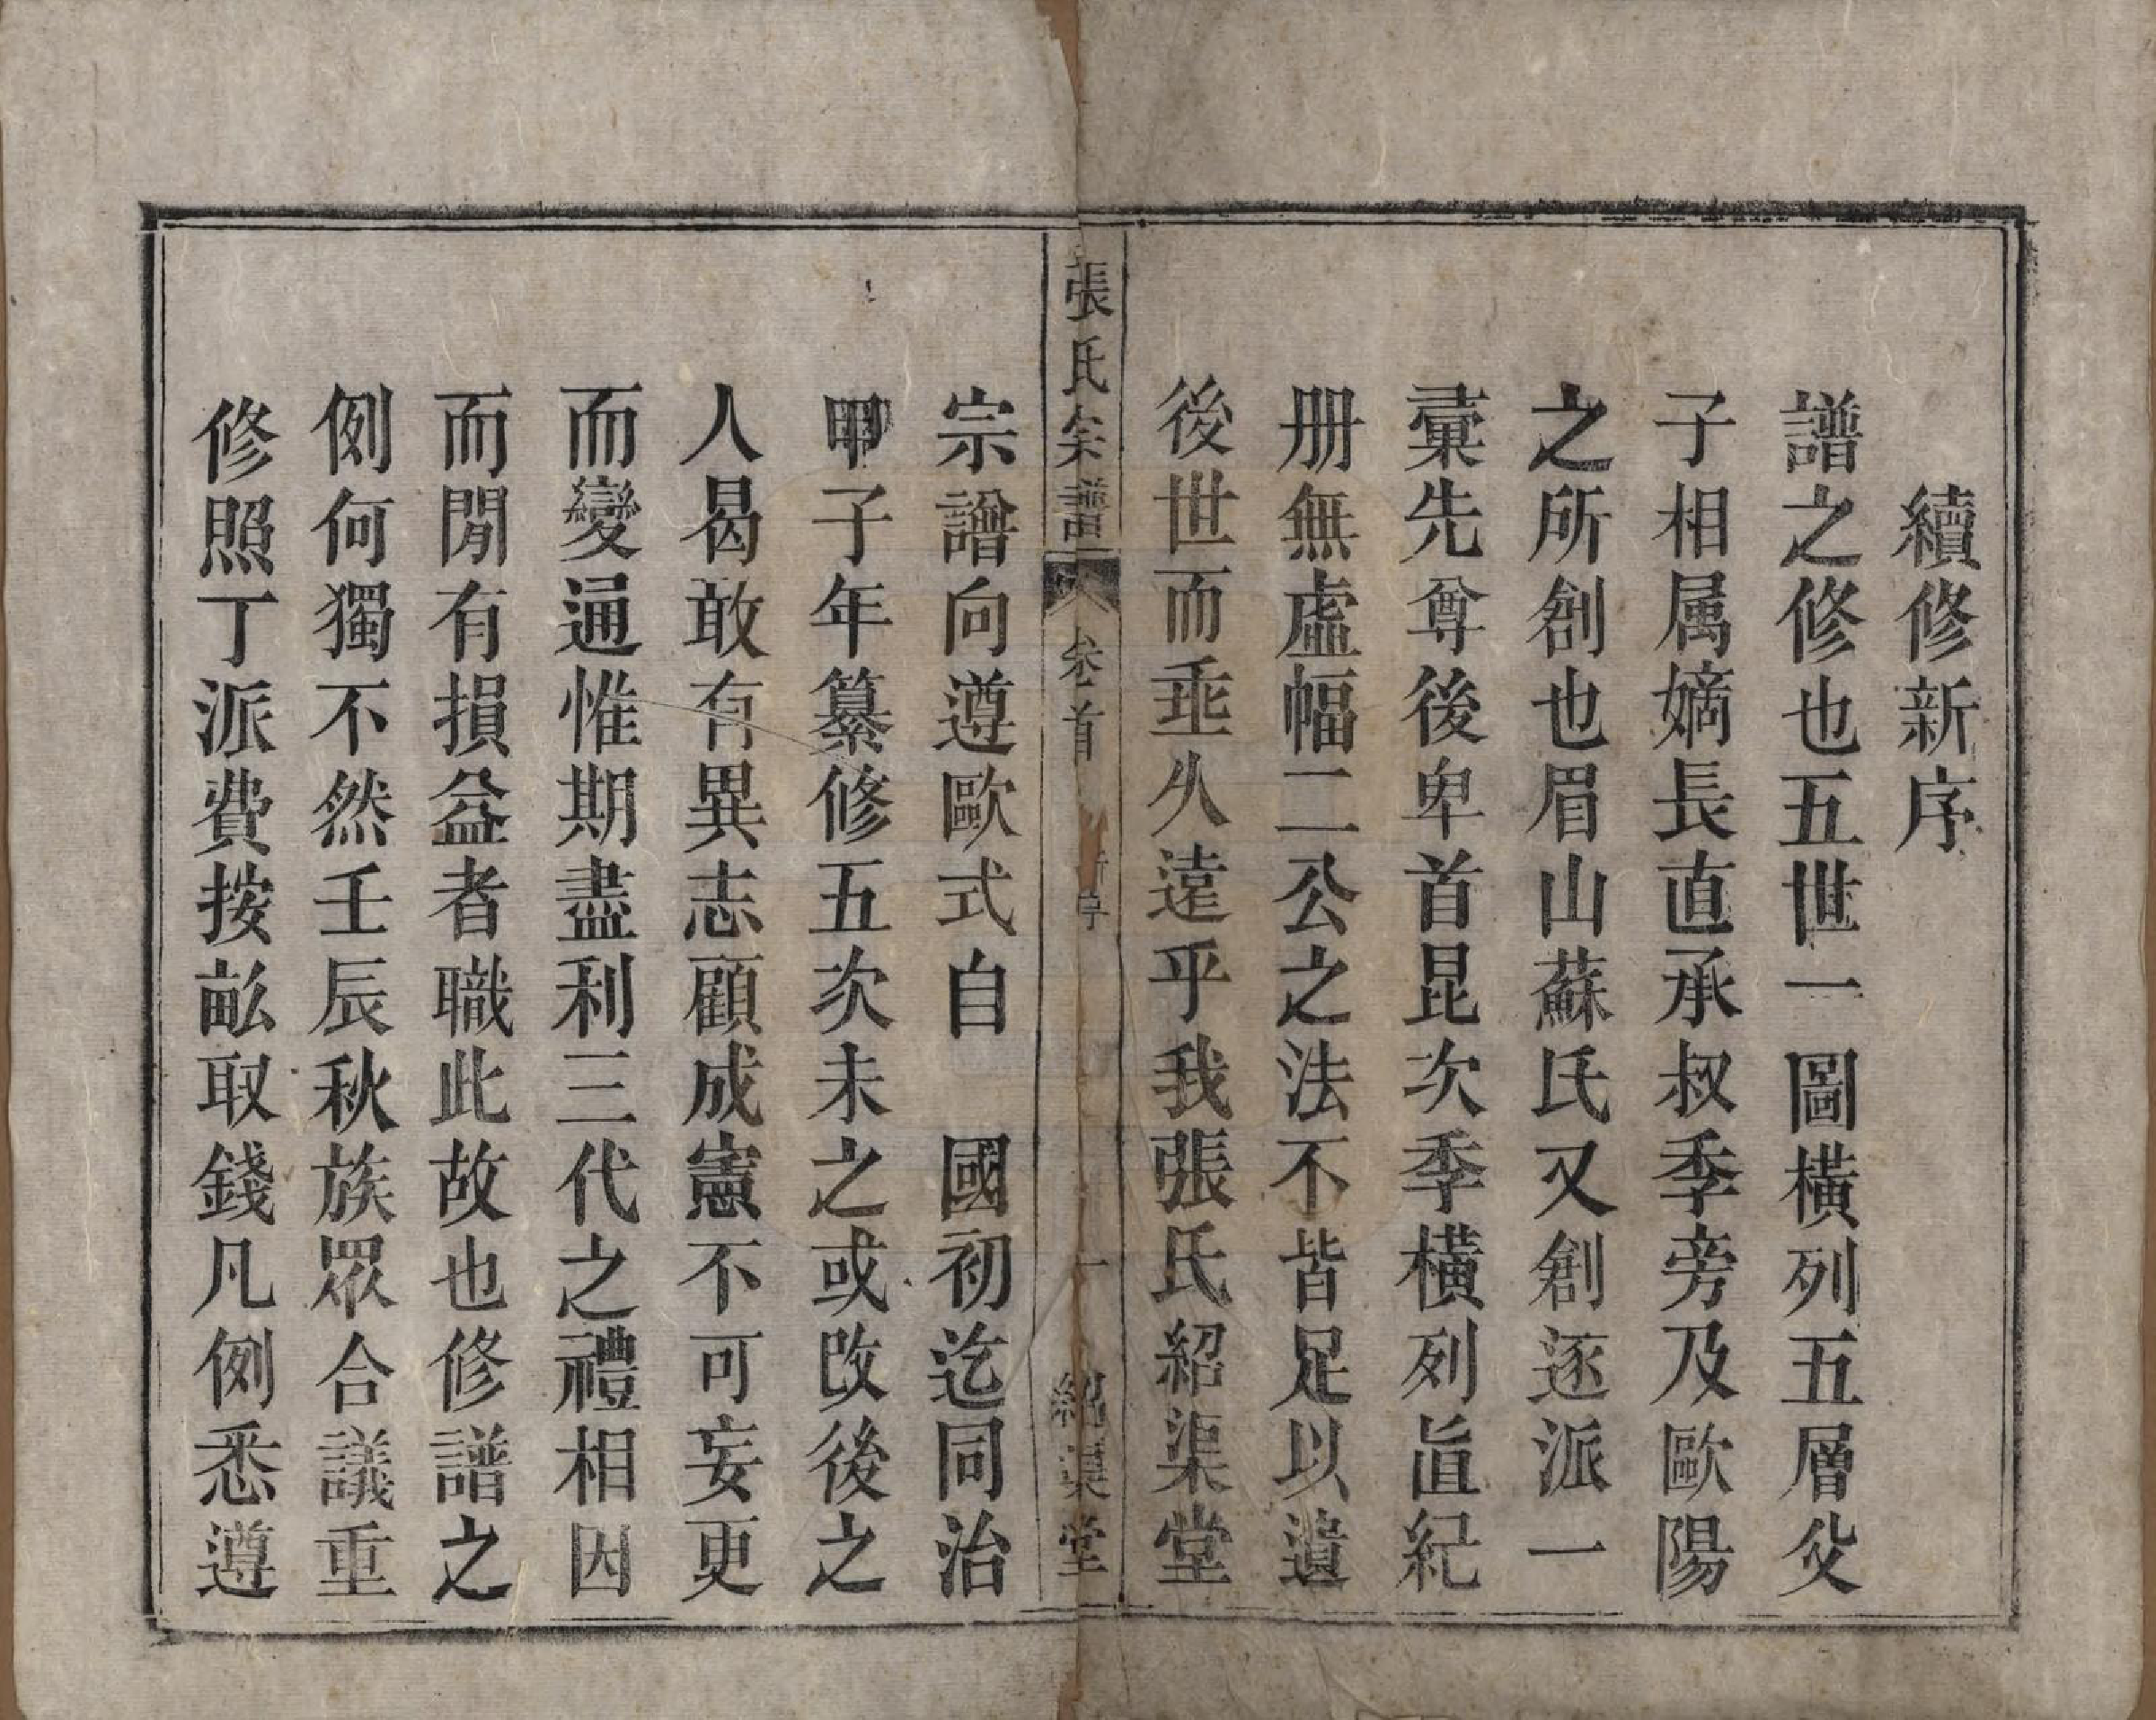 續修新序
譜之修也五世一圖橫列五層父
子相属嫡長直承叔季旁及歐陽
之所創也眉山蘇氏又創逐派一
彙先尊後卑首昆次季橫列直紀
册無虛幅二公之法不皆足以遺
後世而埀乆遠乎我張氏紹渠堂
張氏宗譜
卷首
新序
一
紹渠堂
宗譜向遵歐式自 國初迄同治
甲子年纂修五次未之或改後之
人曷敢有異志顧成憲不可妄更
而變通惟期盡利三代之禮相因
而閒有損益者職此故也修譜之
例何獨不然壬辰秋族眾合議重
修照丁派費按畝取錢凡例悉遵